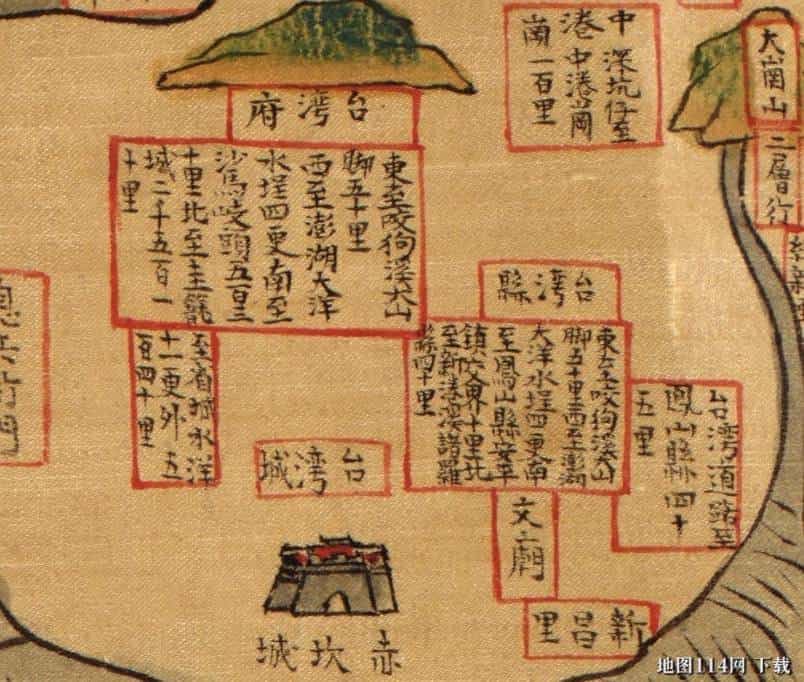 中 深坑仔至
港 中港崗
崗 一百里
大崗山
二層行
台灣府
東至咬狗溪大山
脚五十里
西至澎湖大洋
水埕四更南至
沙馬岐頭五百三
十里北至圭籠
城二千五百一
十里
至省城水洋
十一更外五
百四十里
台灣縣
東至咬狗溪大山
脚五十里西至澎湖
大洋水埕四更南
至鳳山縣安平
鎮交界十里北
至新港溪諸羅
縣四十里
台灣道路至
鳳山縣四十
五里
台灣城
文廟
新昌里
赤坎城
地图114网 下载